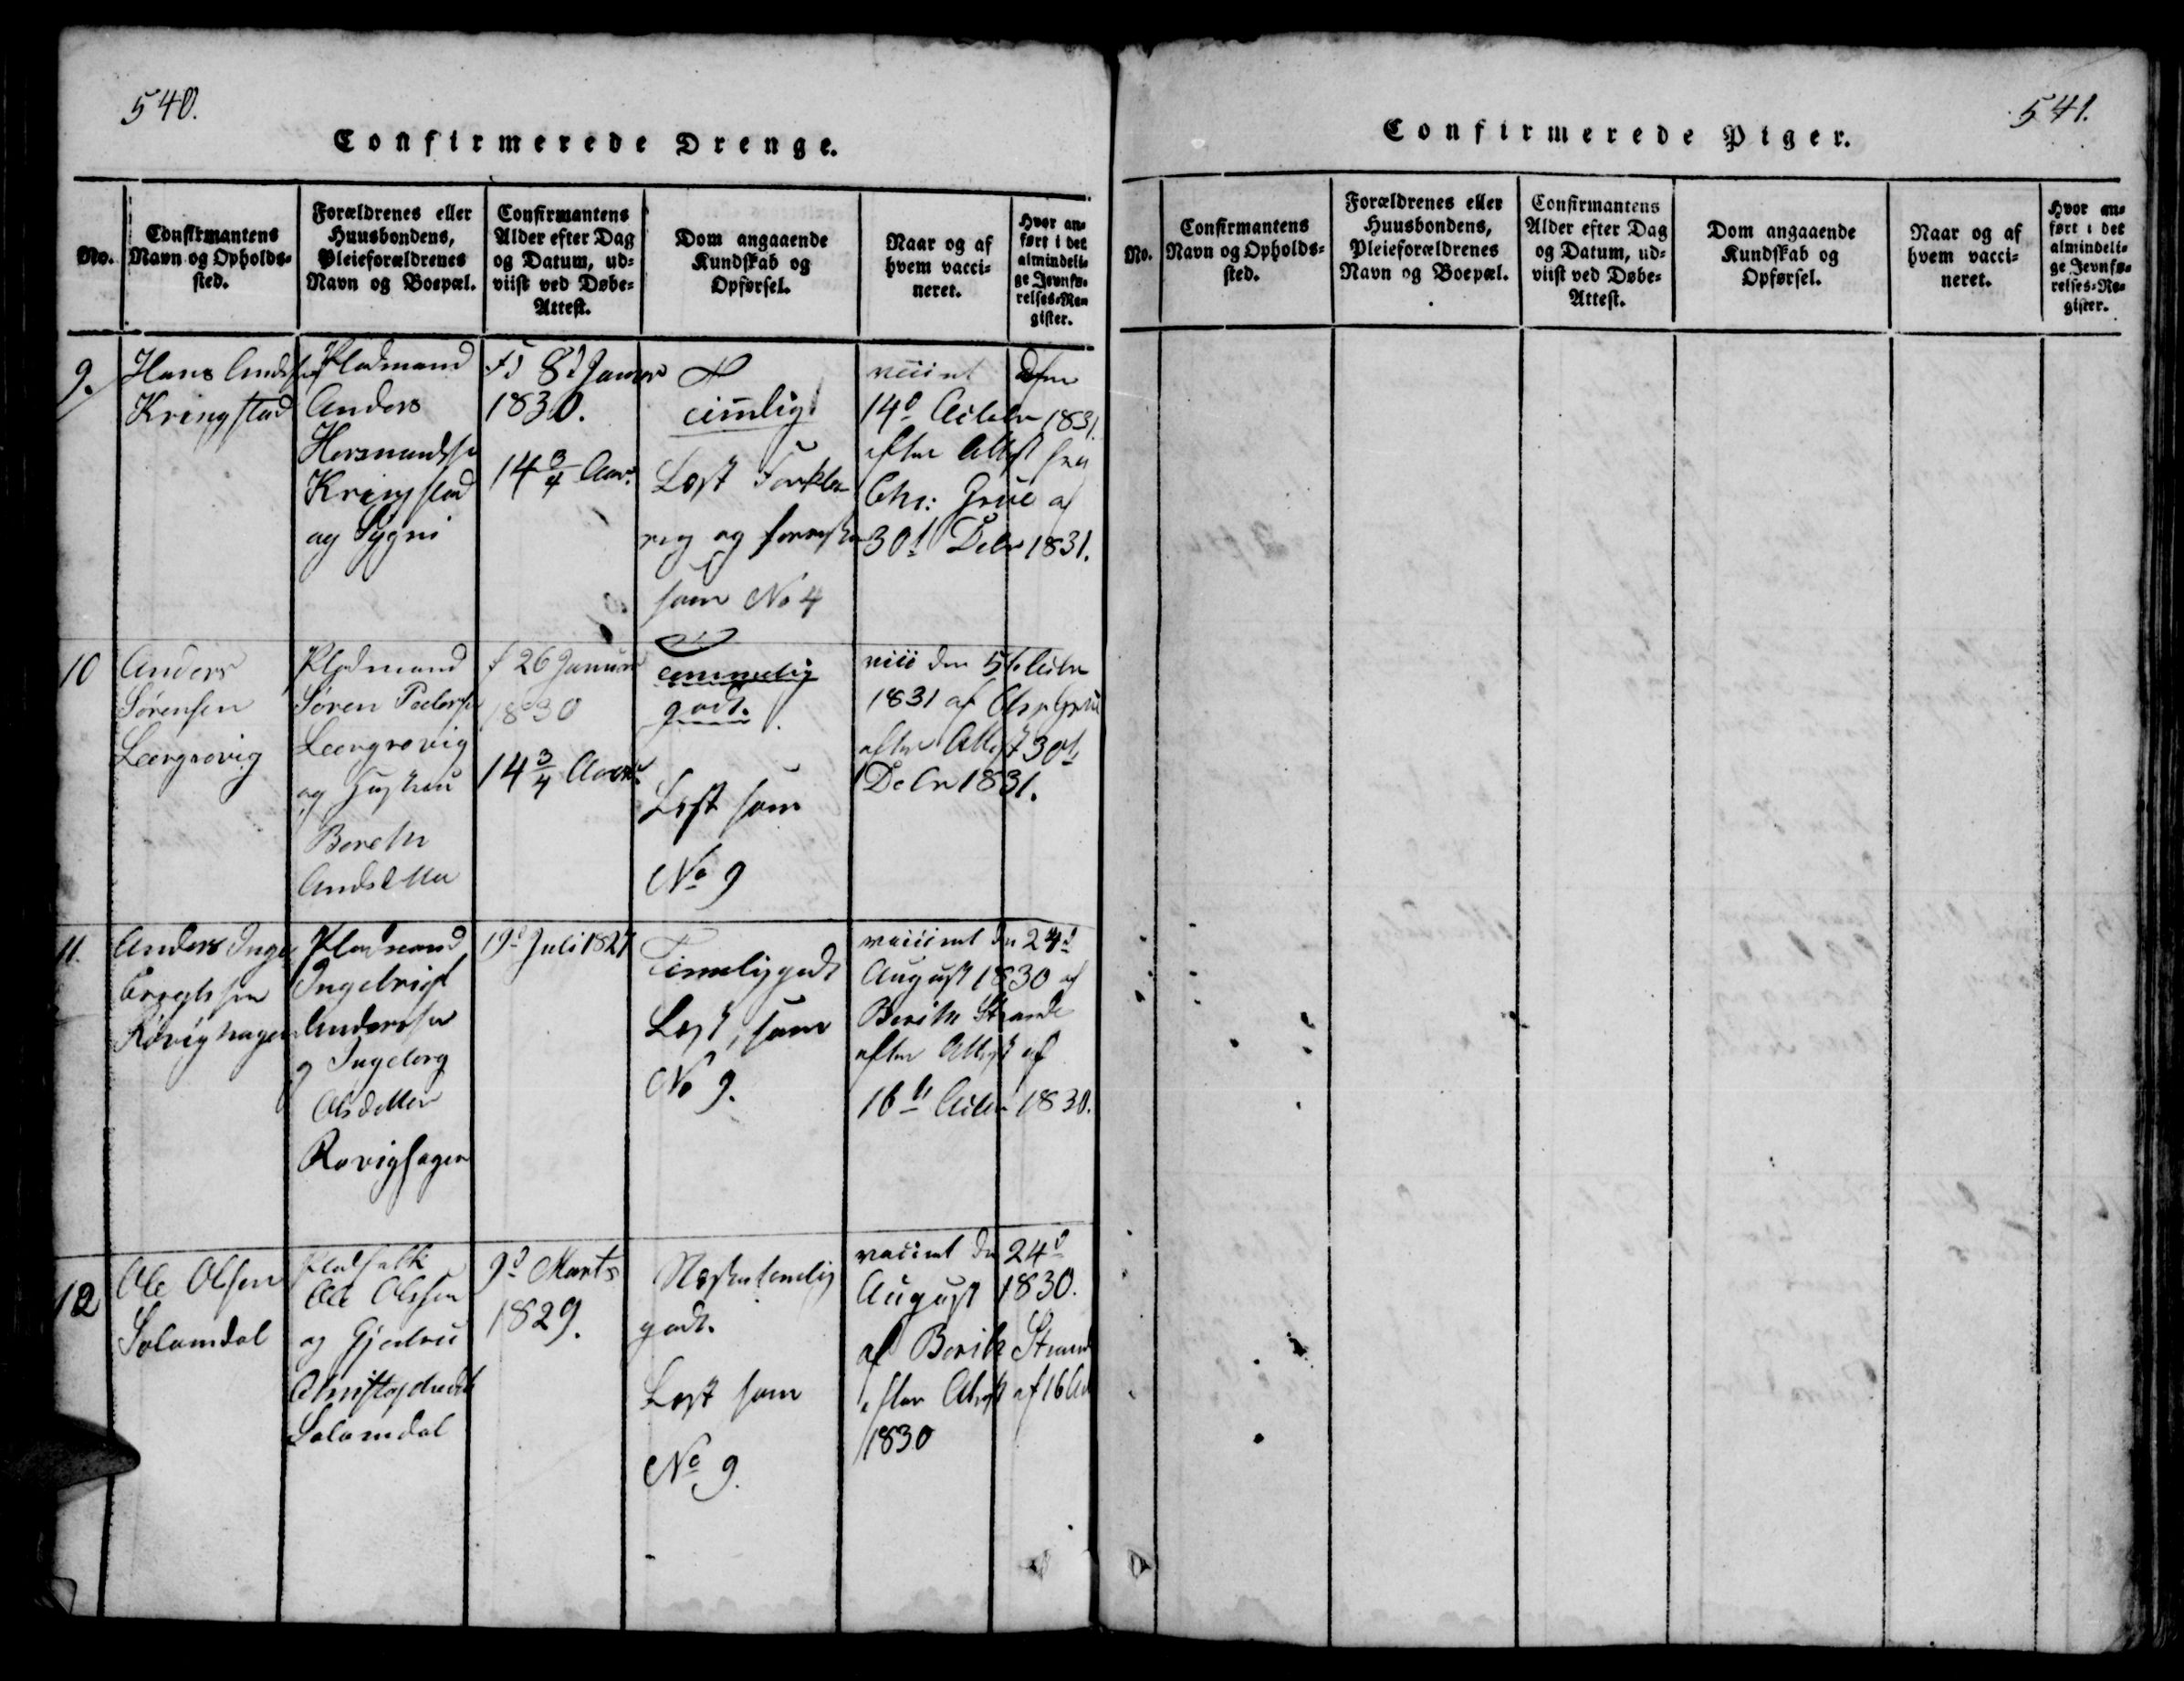 540.
Confirmerede Drenge.
No.
Confirmantens
Navn og Opholds-
sted.
Forældrenes eller
Huusbondens,
Pleieforældrenes
Navn og Boepæl.
Confirmantens
Alder efter Dag
og Datum, ud-
viist ved Døbe-
Attest.
Dom angaaende
Kundskab og
Opførsel.
Naar og af
hvem vacci-
neret.
Hvor an-
ført i det
almindeli-
ge Jevnfø-
relses-Re-
gister.
9.
Hans
Kringstad
Pladsmand
Anders
Kringstad
og Sygni
8d Januar
1830.
14 3/4 Aar.
Læst
som No 4
14d 1831.
efter Attest fra
Chr: Grue af
30t Decbr 1831.
10
Anders
Sørensen
Leergrovig
Pladsmand
Søren Pedersen
Leergrovig
og Hustru
Berethe
f 26 Januar
1830
14 3/4 Aar.
godt.
Læst som
No 9
den 5te
1831 af
efter Attest 30t
Decbr 1831.
11.
Anders Inge
Røvighagen
Pladsmand
Ingebrigt
Andersen
og Ingeborg
Røvighagen
19d Juli 1827
Temmelig godt
Læst, som
No 9.
den 24d
August 1830 af
Berithe Strande
efter Attest af
16d 1830.
12
Ole Olsen
Solemdal
Pladsfolk
Ole Olsen
og
Solemdal
9d Marts
1829.
Næsten temelig
godt.
Læst som
No 9.
den 24d
August 1830.
af Berith Strand
efter Attest af 16
1830
541.
Confirmerede Piger.
No.
Confirmantens
Navn og Opholds-
sted.
Forældrenes eller
Huusbondens,
Pleieforældrenes
Navn og Boepæl.
Confirmantens
Alder efter Dag
og Datum, ud-
viist ved Døbe-
Attest.
Dom angaaende
Kundskab og
Opførsel.
Naar og af
hvem vacci-
neret.
Hvor an-
ført i det
almindeli-
ge Jevnfø-
relses-Re-
gister.